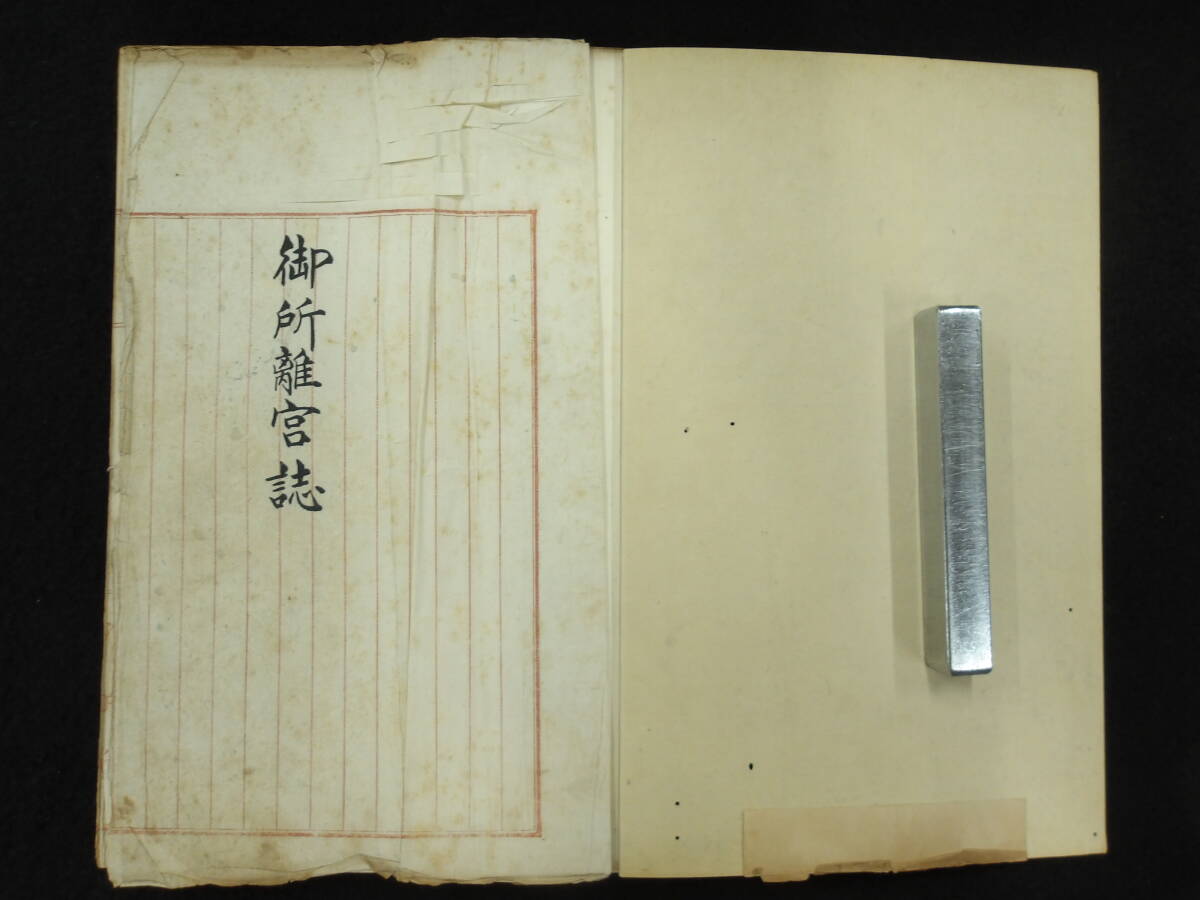 御所離宮誌